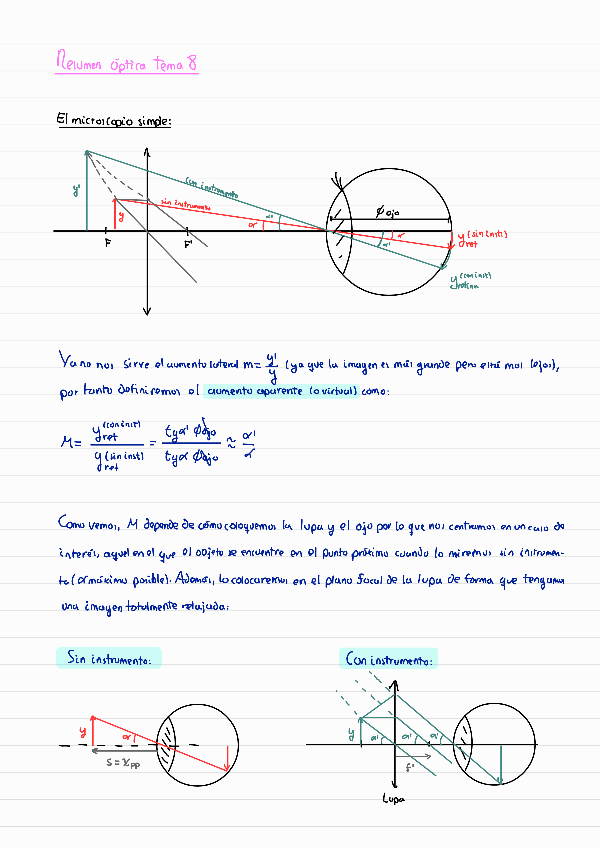 Resumen óptica tema 8
El microscopio simple:
con instrumento
sin instrumento
y'
y
α
α'
F
F'
ϕ ojo
α
α'
y ret (sin inst)
y retina (con inst)
Ya no nos sirve el aumento lateral m = y'/y (ya que la imagen es más grande pero está más lejos),
por tanto definiremos el aumento aparente (o virtual) como:
M = y ret (con inst) / y ret (sin inst) = tg α' ϕ ojo / tg α ϕ ojo ≈ α'/α
Como vemos, M depende de cómo coloquemos la lupa y el ojo por lo que nos centramos en un caso de
interés, aquel en el que el objeto se encuentre en el punto próximo cuando lo miremos sin instrumen-
to (α máximo posible). Además, lo colocaremos en el plano focal de la lupa de forma que tengamos
una imagen totalmente relajada:
Sin instrumento:
Con instrumento:
y
α
s = x pp
y
α'
α'
α'
f'
Lupa